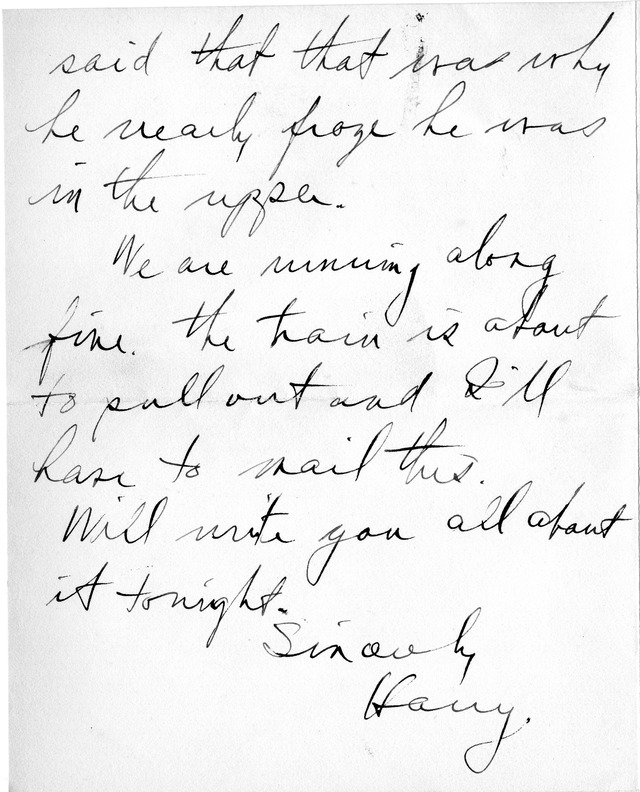 said that that was why
he nearly froze he was
in the upper.
We are running along
fine. The train is about
to pull out and I'll
have to mail this.
Will write you all about
it tonight.
Sincerely
Harry.